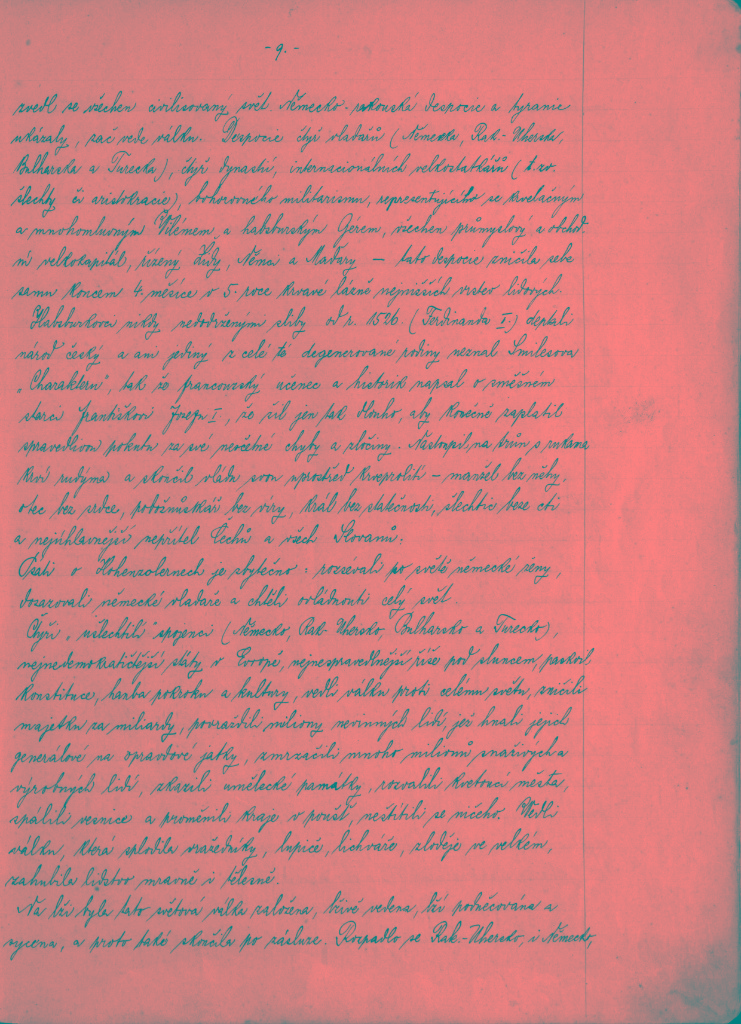 - 9. -
zvedl se všechen civilisovaný svět. Německo-rakouská despocie a tyranie
ukázaly, zač vede válku. Despocie čtyř vladařů (Německa, Rak.-Uherska,
Bulharska a Turecka), čtyř dynastií, internacionálních velkostatkářů (t. zv.
šlechty či aristokracie), bohorovného militarismu, representujícího se krvelačným
a mnohomluvným Vilémem a habsburským Gérem, všechen průmyslový a obchod-
ní velkokapitál, řízený Židy, Němci a Maďary — tato despocie zničila sebe
samu koncem 4. měsíce v 5. roce krvavé lázně nejnižších vrstev lidových.
Habsburkové nikdy nedodrženými sliby od r. 1526. (Ferdinanda I.) deptali
národ český a ani jediný z celé té degenerované rodiny neznal Smilesova
„Charakteru", tak že francouzský učenec a historik napsal o směšném
starci Františkovi Josefu I., že žil jen tak dlouho, aby konečně zaplatil
spravedlivou pokutu za své nesčetné chyby a zločiny. Nastoupil na trůn s rukama
krví rudýma a skončil vládu svou uprostřed krveprolití — manžel bez něhy,
otec bez srdce, pobožnůstkář bez víry, král bez statečnosti, šlechtic beze cti
a nejúhlavnější nepřítel Čechů a všech Slovanů.
Psáti o Hohenzolernech je zbytečno: rozsévali po světě německé ženy,
dosazovali německé vladaře a chtěli ovládnouti celý svět.
Čtyři „ušlechtilí" spojenci (Německo, Rak-Uhersko, Bulharsko a Turecko),
nejnedemokratičtější státy v Evropě, nejnespravedlnější říše pod sluncem, paskvil
konstituce, hanba pokroku a kultury, vedli válku proti celému světu, zničili
majetku za miliardy, povraždili miliony nevinných lidí, jež hnali jejich
generálové na opravdové jatky, zmrzačili mnoho milionů snaživých a
výrobných lidí, zkazili umělecké památky, rozvalili kvetoucí města,
spálili vesnice a proměnili kraje v poušť, neštítili se ničeho. Vedli
válku, která zplodila vražedníky, lupiče, lichváře, zloděje ve velkém,
zahubila lidstvo mravně i tělesně.
Na lži byla tato světová válka založena, lživě vedena, lží podněcována a
sycena, a proto také skončila po zásluze. Rozpadlo se Rak.-Uhersko, i Německo,